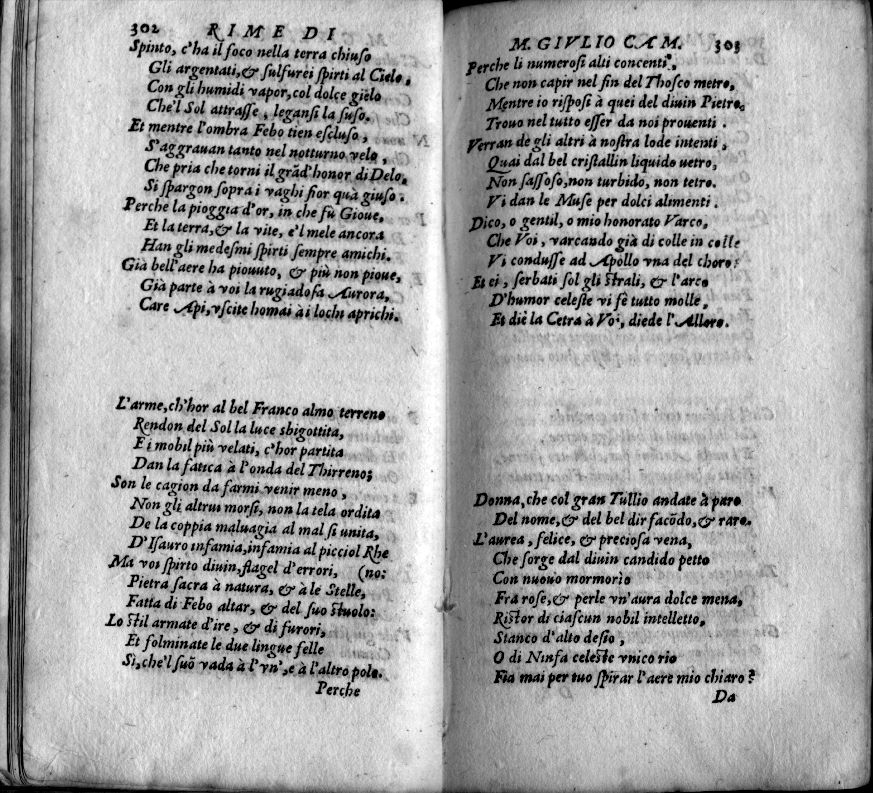 302 RIME DI
Spinto, c'ha il foco nella terra chiuso
Gli argentati, & sulfurei spirti al Cielo,
Con gli humidi vapor, col dolce gielo
Che'l Sol attrasse, legansi la suso.
Et mentre l'ombra Febo tien escluso,
S'aggrauan tanto nel notturno velo,
Che pria che torni il grãd'honor di Delo,
Si spargon sopra i vaghi fior quà giuso.
Perche la pioggia d'or, in che fù Gioue,
Et la terra, & la vite, e'l mele ancora
Han gli medesmi spirti sempre amichi.
Già bell'aere ha piouuto, & più non pioue,
Già parte à voi la rugiadosa Aurora,
Care Api, vscite homai ài lochi aprichi.
L'arme, ch'hor al bel Franco almo terreno
Rendon del Sol la luce sbigottita,
E i mobil più velati, c'hor partita
Dan la fatica à l'onda del Thirreno;
Son le cagion da farmi venir meno,
Non gli altrui morsi, non la tela ordita
De la coppia maluagia al mal si unita,
D'Isauro infamia, infamia al picciol Rhe
Ma voi spirto diuin, flagel d'errori, (no:
Pietra sacra à natura, & à le Stelle,
Fatta di Febo altar, & del suo stuolo:
Lo stil armate d'ire, & di furori,
Et folminate le due lingue felle
Sì, che'l suõ vada à l'vn', e à l'altro polo.
Perche
M. GIVLIO CAM. 303
Perche li numerosi alti concenti,
Che non capir nel fin del Thosco metro,
Mentre io risposi à quei del diuin Pietro,
Trouo nel tutto esser da noi prouenti.
Verran de gli altri à nostra lode intenti,
Quai dal bel cristallin liquido uetro,
Non sassoso, non turbido, non tetro.
Vi dan le Muse per dolci alimenti.
Dico, o gentil, o mio honorato Varco,
Che Voi, varcando già di colle in colle
Vi condusse ad Apollo vna del choro:
Et ei, serbati sol gli strali, & l'arco
D'humor celeste vi fè tutto molle,
Et diè la Cetra à Voi, diede l'Alloro.
Donna, che col gran Tullio andate à paro
Del nome, & del bel dir facõdo, & raro.
L'aurea, felice, & preciosa vena,
Che sorge dal diuin candido petto
Con nuouo mormorio
Fra rose, & perle vn'aura dolce mena,
Ristor di ciascun nobil intelletto,
Stanco d'alto desio,
O di Ninfa celeste vnico rio
Fia mai per tuo spirar l'aere mio chiaro?
Da